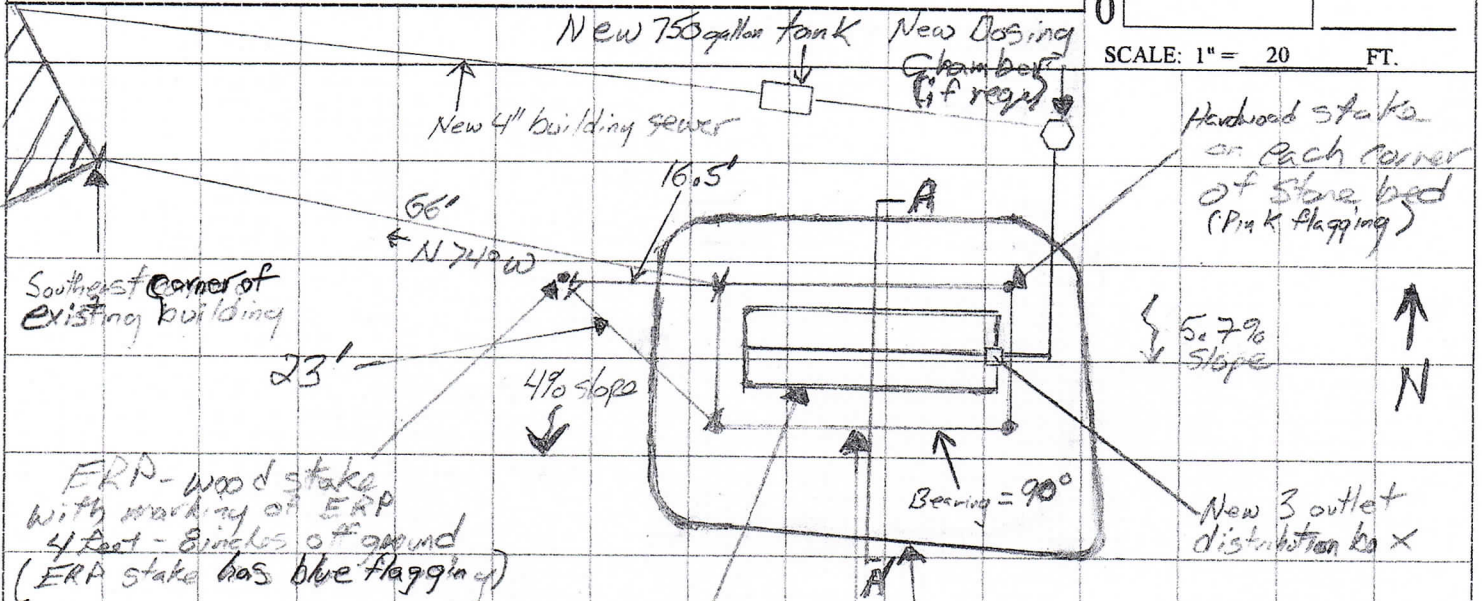 0
SCALE: 1" = 20 FT.
New 750 gallon tank
New Dosing
Chamber
(if reqd)
New 4" building sewer
Hardwood stake
on each corner
of stone bed
(Pink flagging)
16.5'
A
66'
N 74° W
Southeast corner of
existing building
23'
4% slope
5.7%
slope
N
ERP - wood stake
with marking of ERP
4 feet - 8 inches off ground
(ERP stake has blue flagging)
Bearing = 90°
New 3 outlet
distribution box
A'